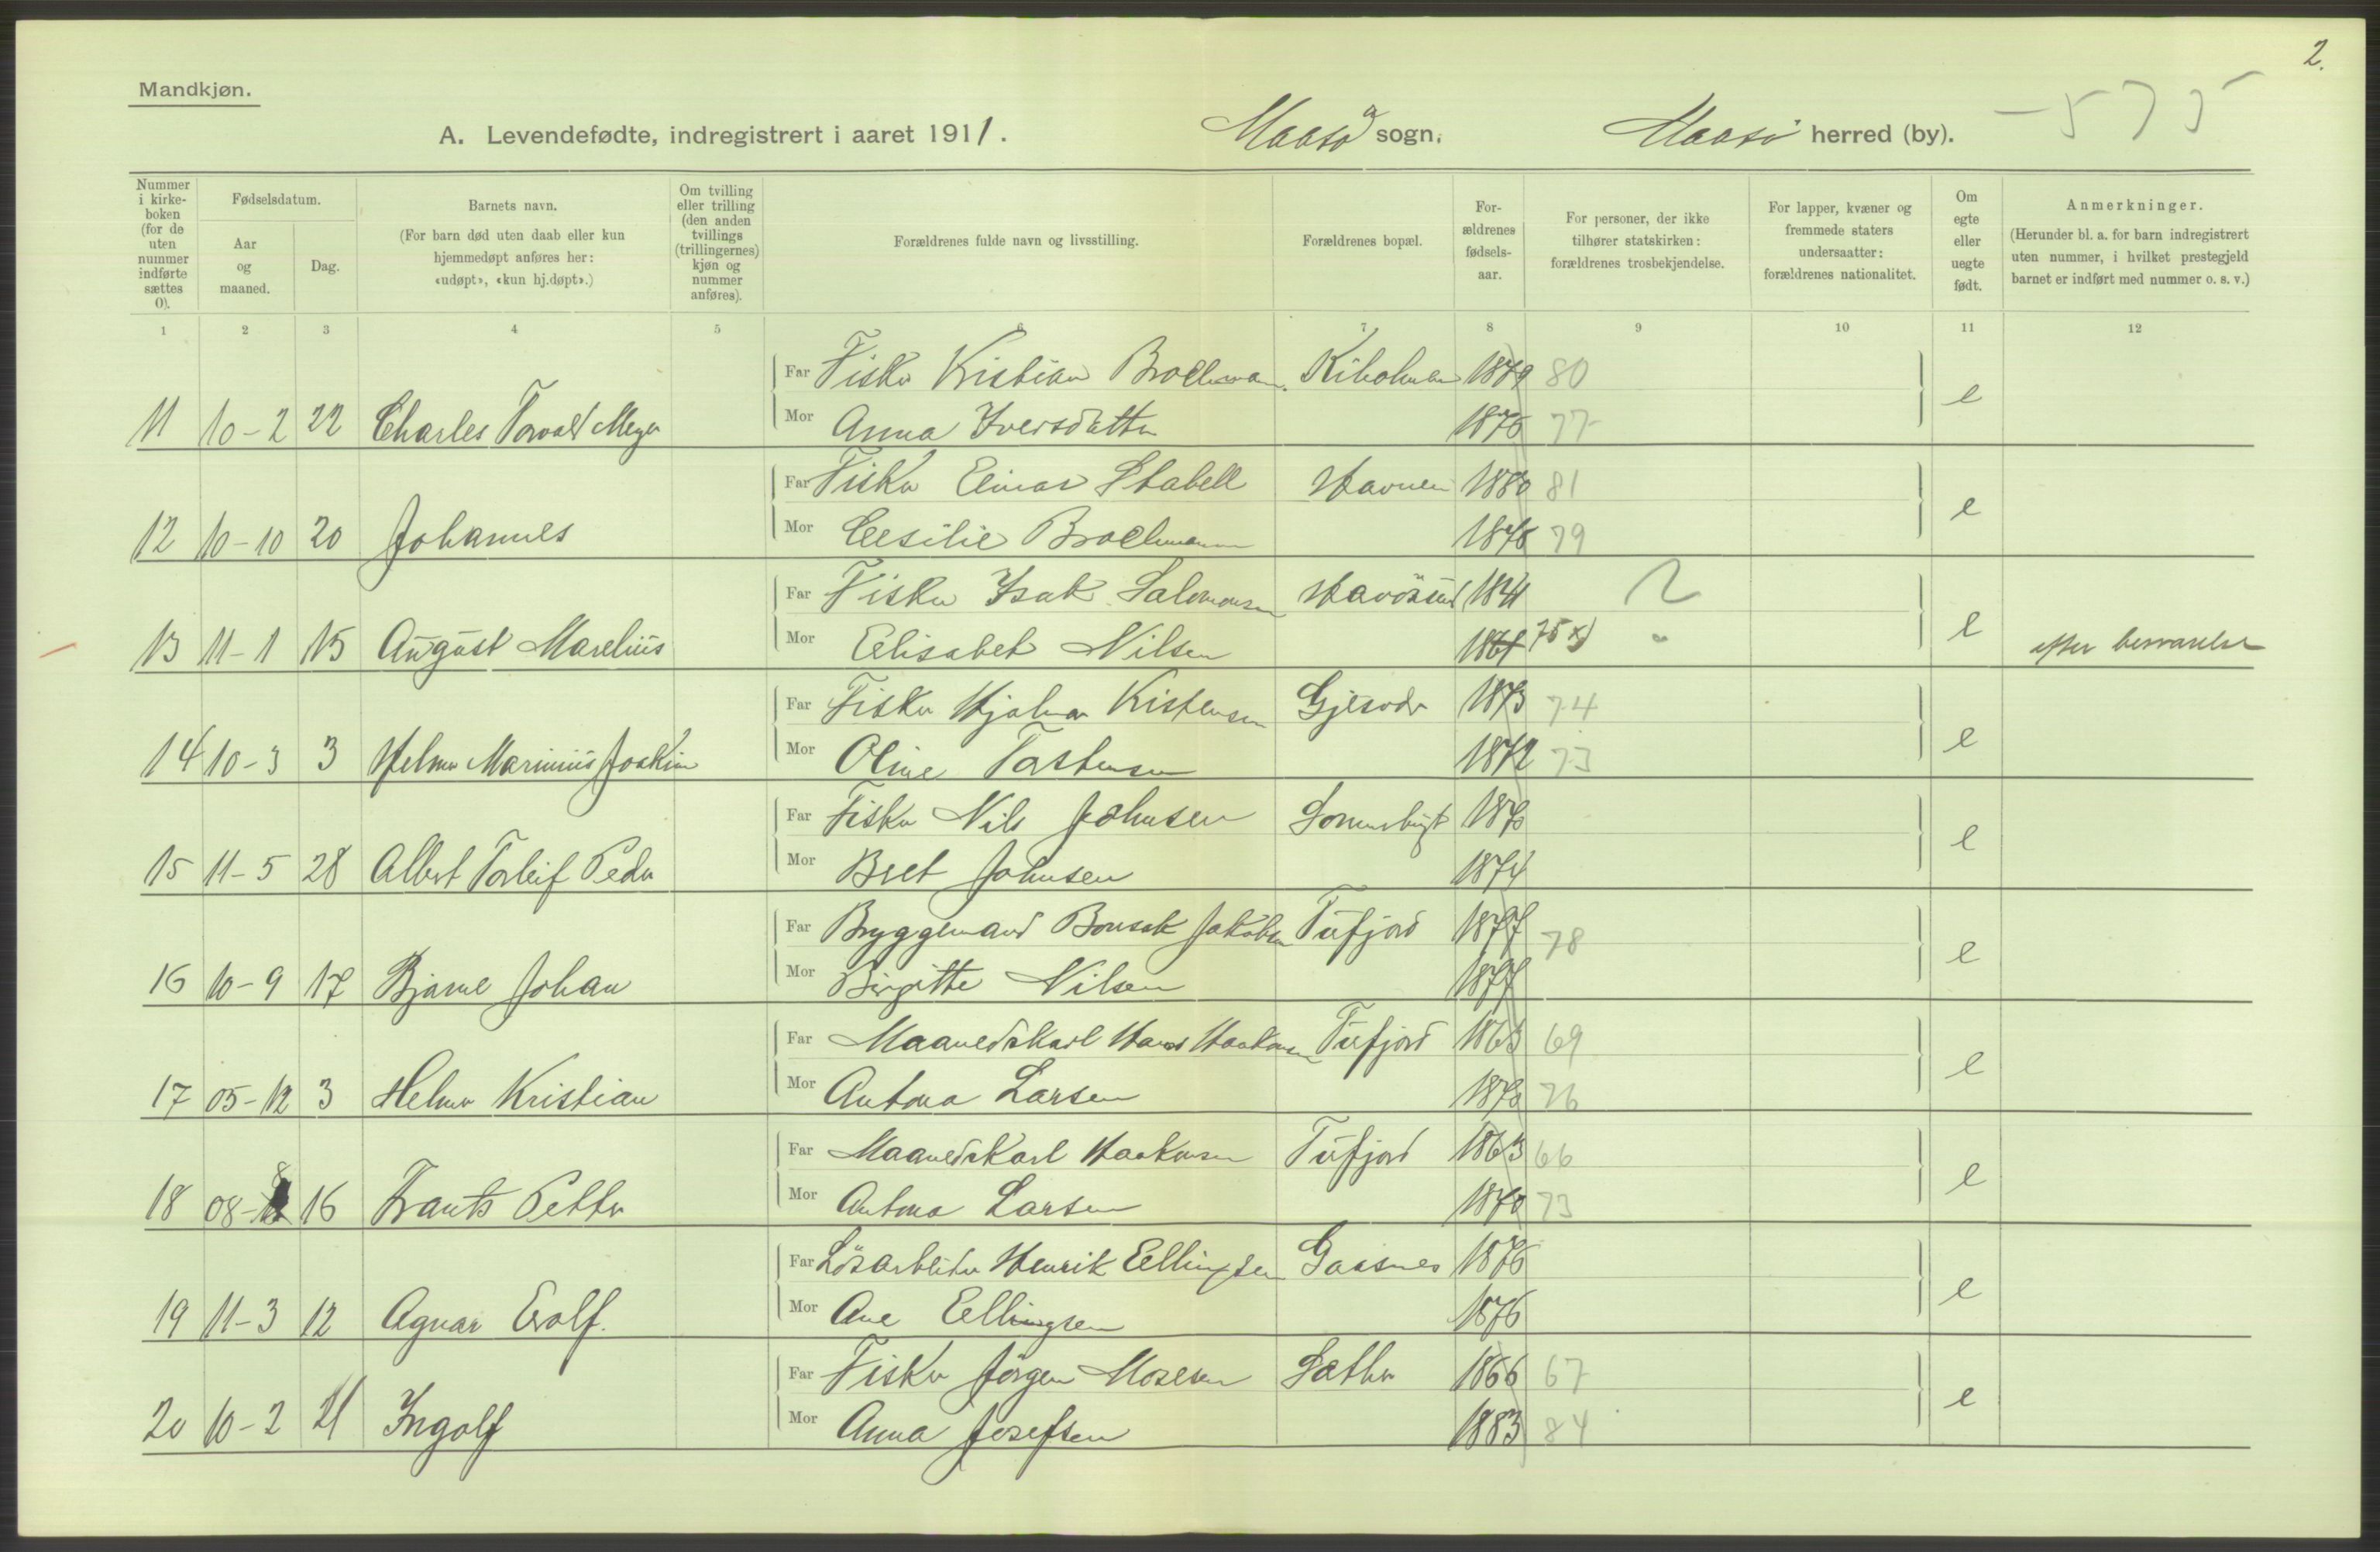 2.
Mandkjøn.
-575
A. Levendefødte, indregistrert i aaret 1911. Maasø sogn, Maasø herred (by).
Nummer i kirke-boken (for de uten nummer indførte sættes 0).
Fødselsdatum.
Aar og maaned.
Dag.
Barnets navn.
(For barn død uten daab eller kun hjemmedøpt anføres her: «udøpt», «kun hj.døpt».)
Om tvilling eller trilling (den anden tvillings (trillingernes) kjøn og nummer anføres).
Forældrenes fulde navn og livsstilling.
Forældrenes bopæl.
For-ældrenes fødsels-aar.
For personer, der ikke tilhører statskirken: forældrenes trosbekjendelse.
For lapper, kvæner og fremmede staters undersaatter: forældrenes nationalitet.
Om egte eller uegte født.
Anmerkninger.
(Herunder bl. a. for barn indregistrert uten nummer, i hvilket prestegjeld barnet er indført med nummer o. s. v.)
1 2 3 4 5 6 7 8 9 10 11 12
Far Fisker Kristian Brochmann. 1879 80
11 10-2 22 Charles Torvald Meyer Mor Anna Iversdatter 1876 77 e
Far Fisker Einar Stabell Havnen 1880 81
12 10-10 20 Johannes Mor Cesilie Brochmann 1878 79 e
Far Fisker Isak Salomonsen Havösund 1841
13 11-1 15 August Marelius Mor Elisabet Nilsen 75 x) e efter besvarelse
Far Fisker Hjalmar Kistensen Gjesvær 1873 74
14 10-3 3 Helmer Marinius Joakim Mor Oline Torstensen 1872 73 e
Far Fisker Nils Johnsen 1870
15 11-5 28 Albert Torleif Peder Mor Beret Johnsen 1874 e
Far Bryggemand Bonsak Jakobsen Tufjord 1877 78
16 10-9 17 Bjarne Johan Mor Birgitte Nilsen 1877 e
Far Maanedskarl Hans Haakonsen Tufjord 1863 69
17 05-12 3 Helmer Kristian Mor Antona Larsen 1870 76 e
Far Maanedskarl Haakonsen Tufjord 1863 66
18 08-8 16 Frants Petter Mor Antona Larsen 1870 73 e
Far Lösarbeider Henrik Ellingsen Gaasnes 1876
19 11-3 12 Agnar Evolf. Mor Ane Ellingsen 1876 e
Far Fisker Jörgen Mosesen Sæther 1866 67
20 10-2 21 Ingolf Mor Anna Josefsen 1883 84 e